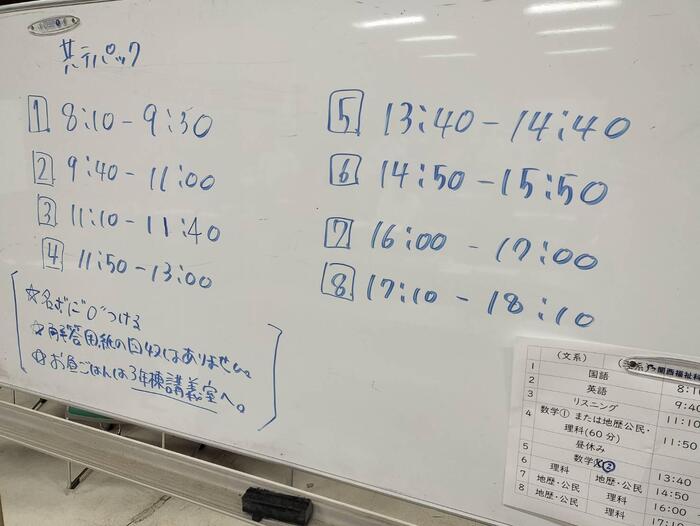 共テパック
1 8:10-9:30
2 9:40-11:00
3 11:10-11:40
4 11:50-13:00
☆名ボに"0"つける
☆解答用紙の回収はありません。
☆お昼ごはんは3年棟講義室へ。
5 13:40-14:40
6 14:50-15:50
7 16:00-17:00
8 17:10-18:10
(文系)
関西福祉科
1 国語 8:10
2 英語 9:40
3 リスニング 11:10
4 数学① または地歴公民・
理科(60分) 11:50
昼休み
5 数学② 13:40
6 理科 地歴・公民 14:50
7 地歴・公民 理科 16:00
8 地歴・公民 理科 17:10